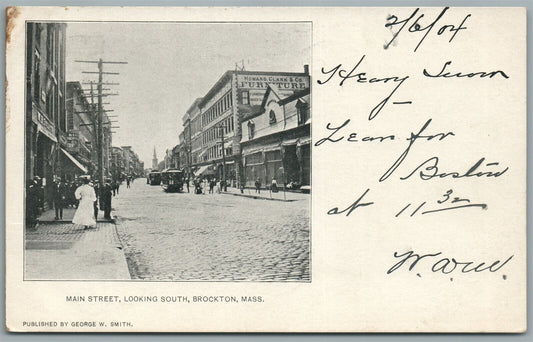 HOWARD CLARK & CO
FURNITURE
2/6/04
Heavy Snow
Leave for
Boston
at 11 30
MAIN STREET, LOOKING SOUTH, BROCKTON, MASS.
PUBLISHED BY GEORGE W. SMITH.